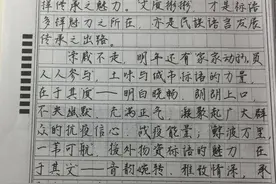 传承之魅力。文质彬彬，才是标语
多样魅力之所在，亦是民族语言发展
传承之出路。
来戴不走，明年还有家家动员，
人人参与，土味与城市标语的力量
在于其质——明白晓畅，朗朗上口，
不失幽默，充满正气，凝聚起广大群
众的抗疫信心，战疫能量；鲜波万里
一苇可航，援外物资标语的魅力在
于其文——音韵婉转，雅致情深，